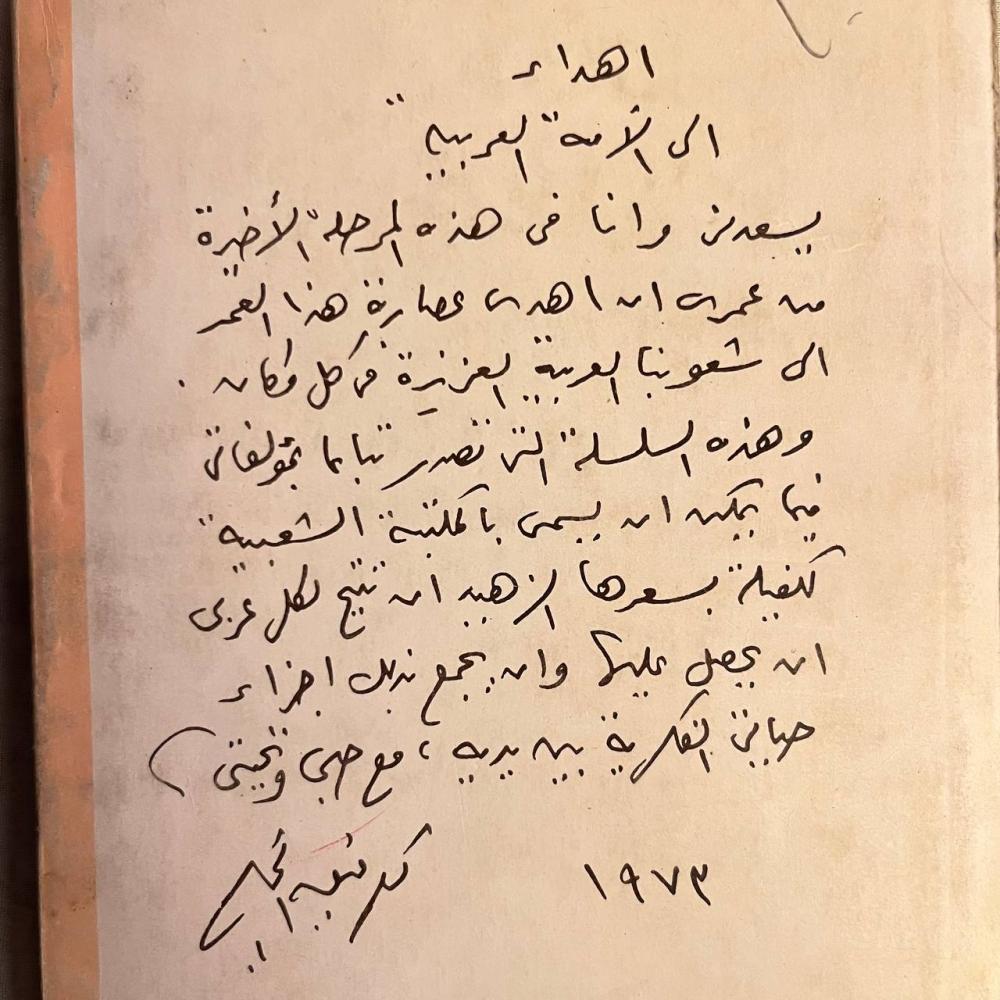 اهداء
الى الأمة العربية
يسعدنى وانا فى هذه المرحلة الأخيرة
من عمرى ان اهدى عصارة هذا العمر
الى شعوبنا العربية العزيزة فى كل مكان .
وهذه السلسلة التى تصدر تباعا بمؤلفاتى
فيما يمكن ان يسمى بالمكتبة الشعبية
كفيلة بسعرها الزهيد ان تتيح لكل عربى
ان يحصل عليها وان يجمع بذلك اجزاء
حياتى الفكرية بين يديه ، مع حبى وتحيتى
١٩٧٣